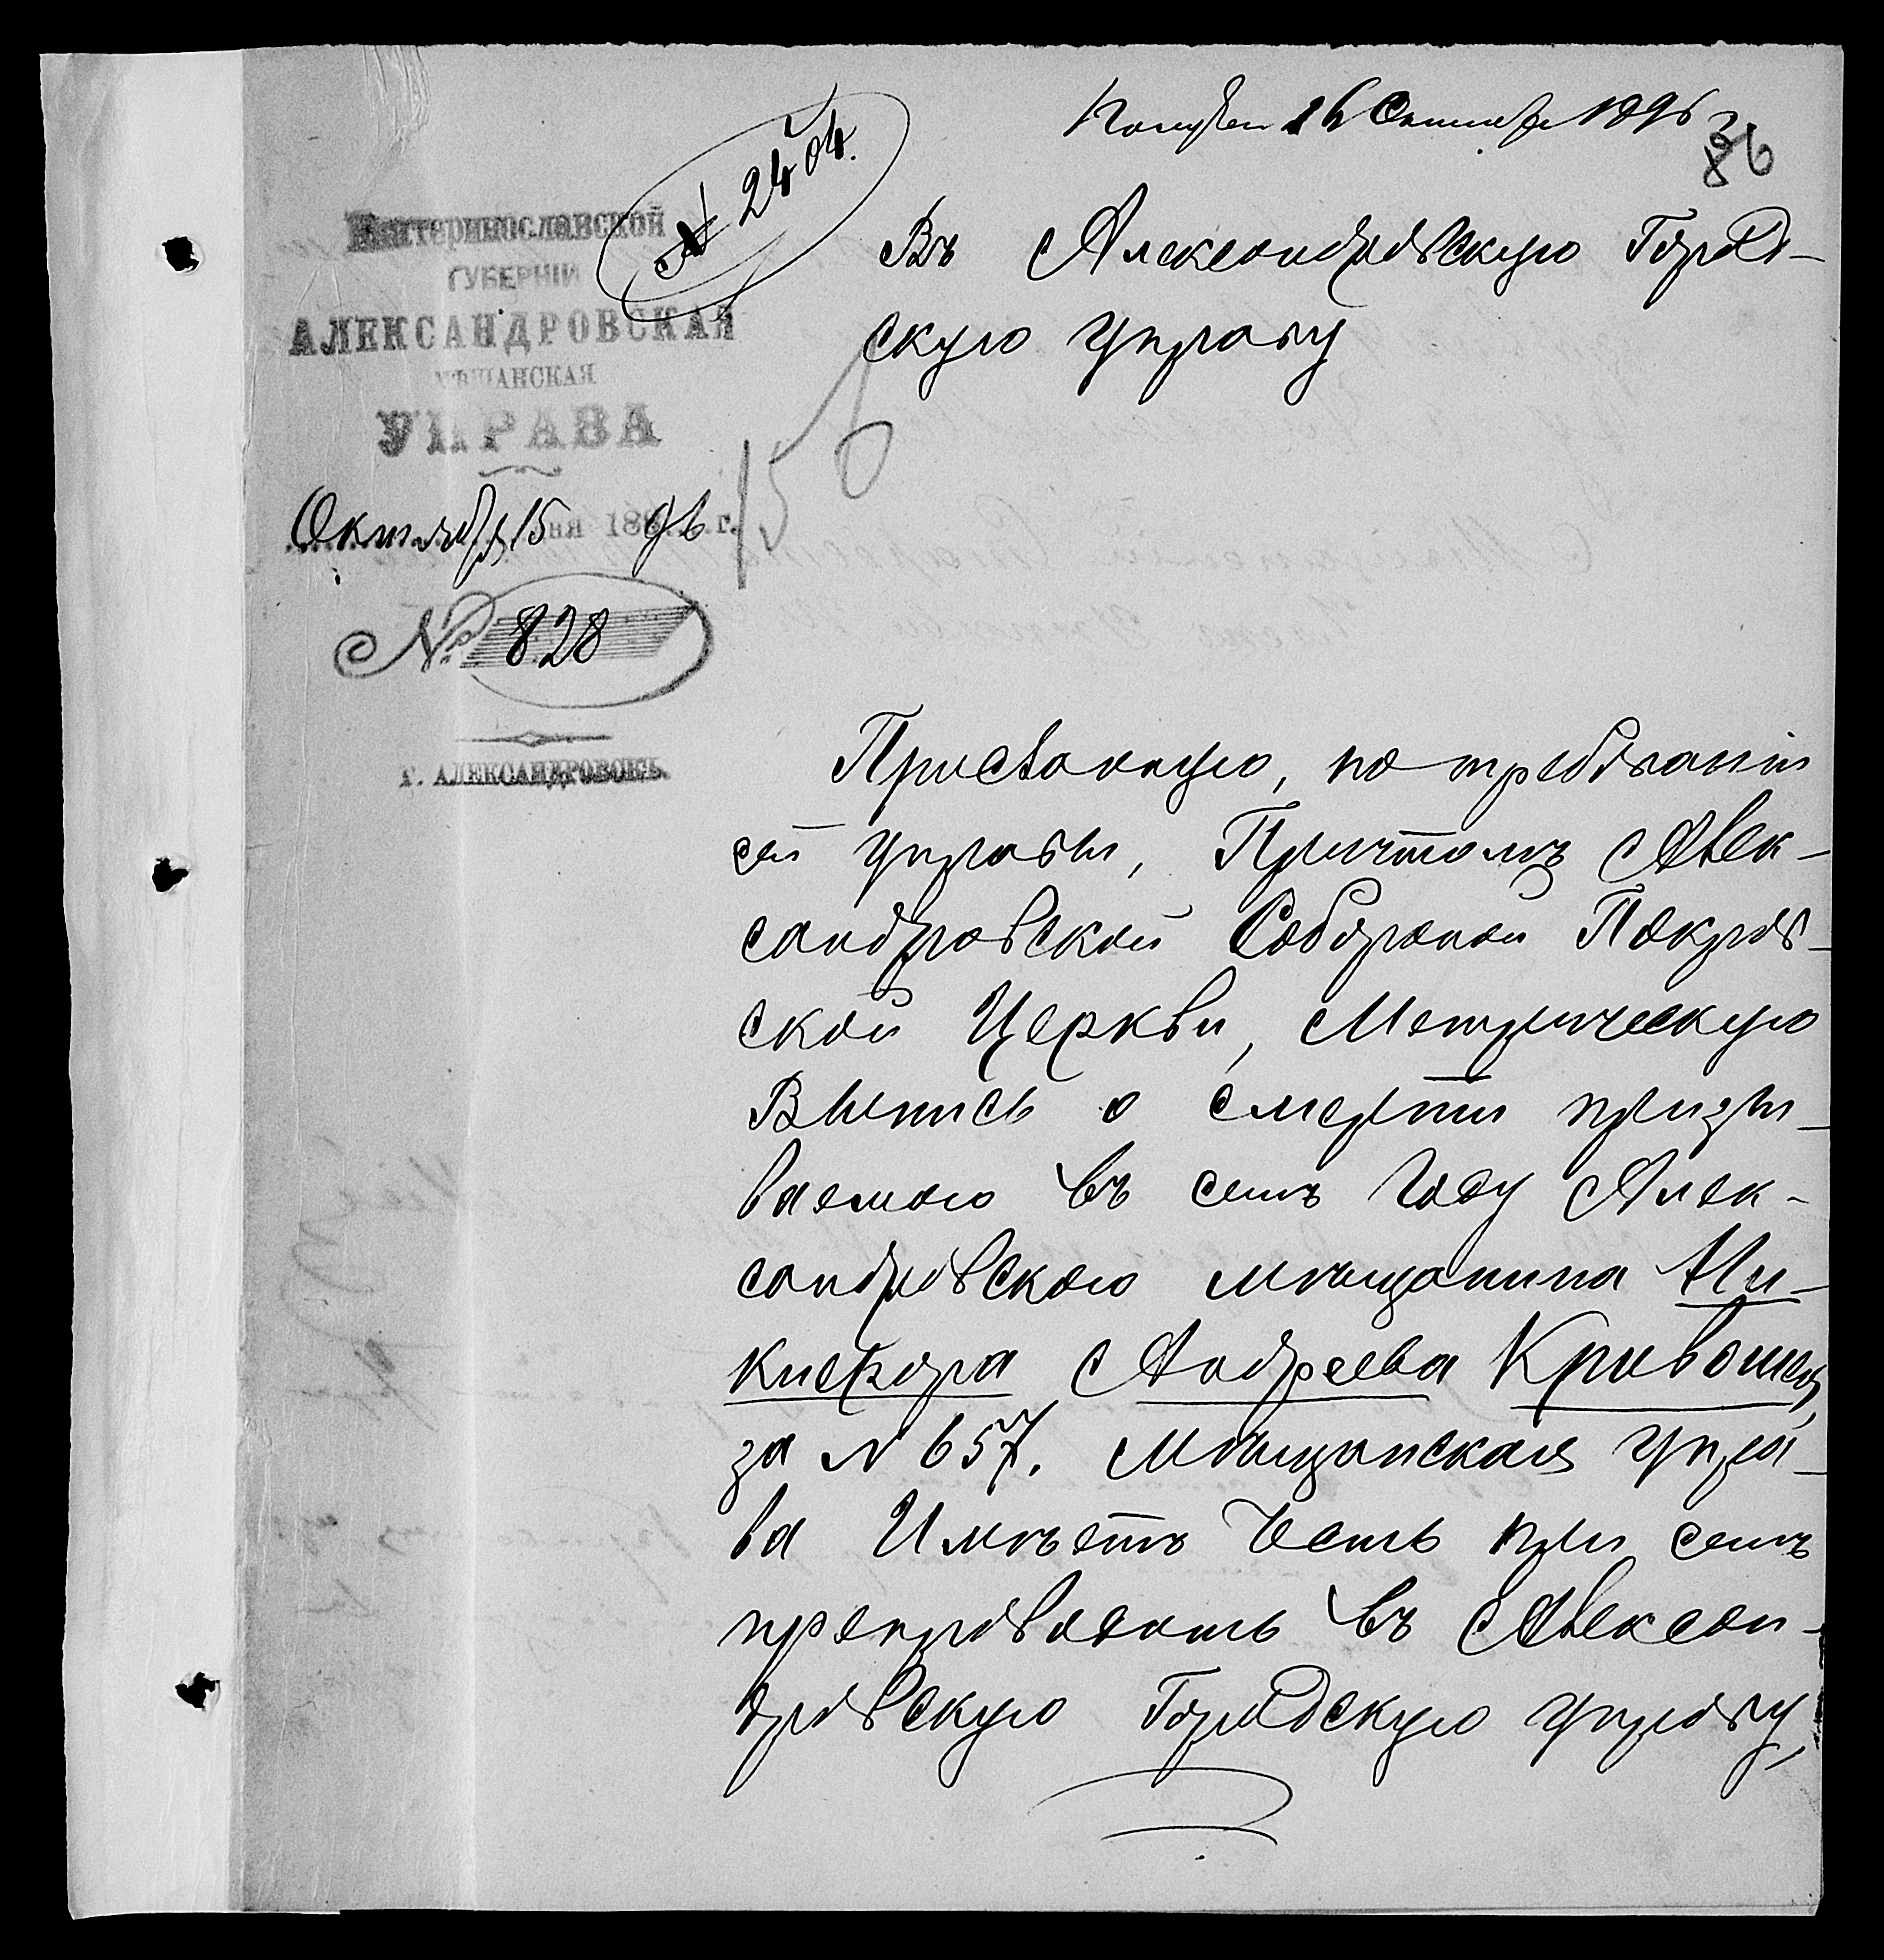 Получен 16 Октября 1896 г.
36
№ 2404.
Екатеринославской
ГУБЕРНІИ
АЛЕКСАНДРОВСКАЯ
МѢЩАНСКАЯ
УПРАВА
Октября 15 дня 1896 г.
№ 828
г. АЛЕКСАНДРОВСКЪ.
Въ Александровскую Город-
скую Управу
Присланную, по требованію
сей управы, Причтомъ Алек-
сандровской Соборной Покров-
ской Церкви, Метрическую
Выпись о смерти призы-
ваемаго въ семъ году Алек-
сандровскаго мѣщанина Ни-
кифора Андреева Кривошеи,
за № 657. Мѣщанская Упра-
ва Имѣетъ Честь при семъ
препроводить въ Алексан-
дровскую Городскую управу,